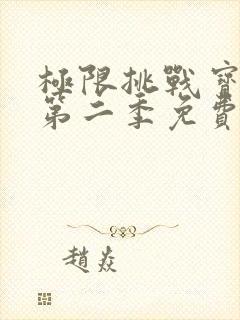 極限挑戰寶
第二季免費
趙焱